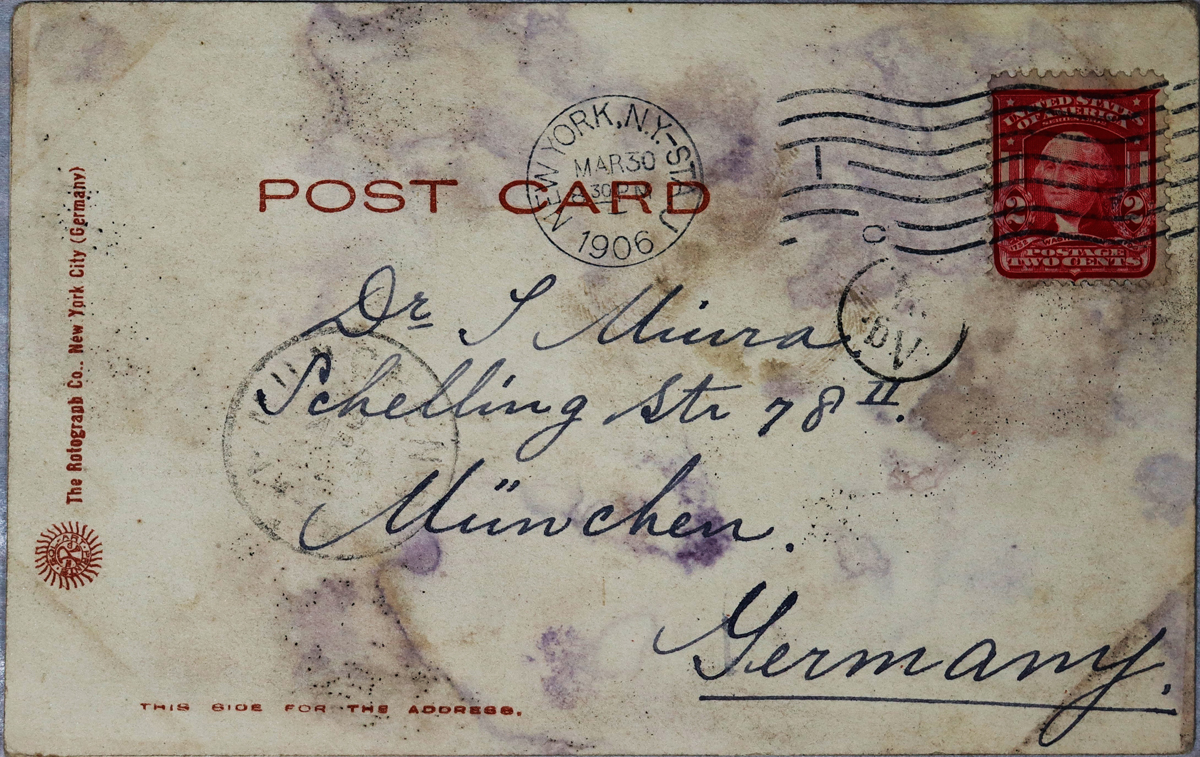 UNITED STATES
OF AMERICA
NEW YORK, N.Y.-STA. J
MAR 30
1906
POST CARD
2 2
POSTAGE
TWO CENTS
Dr. S Miura
Schelling Str 78 II.
München.
Germany.
The Rotograph Co., New York City (Germany)
THIS SIDE FOR THE ADDRESS.